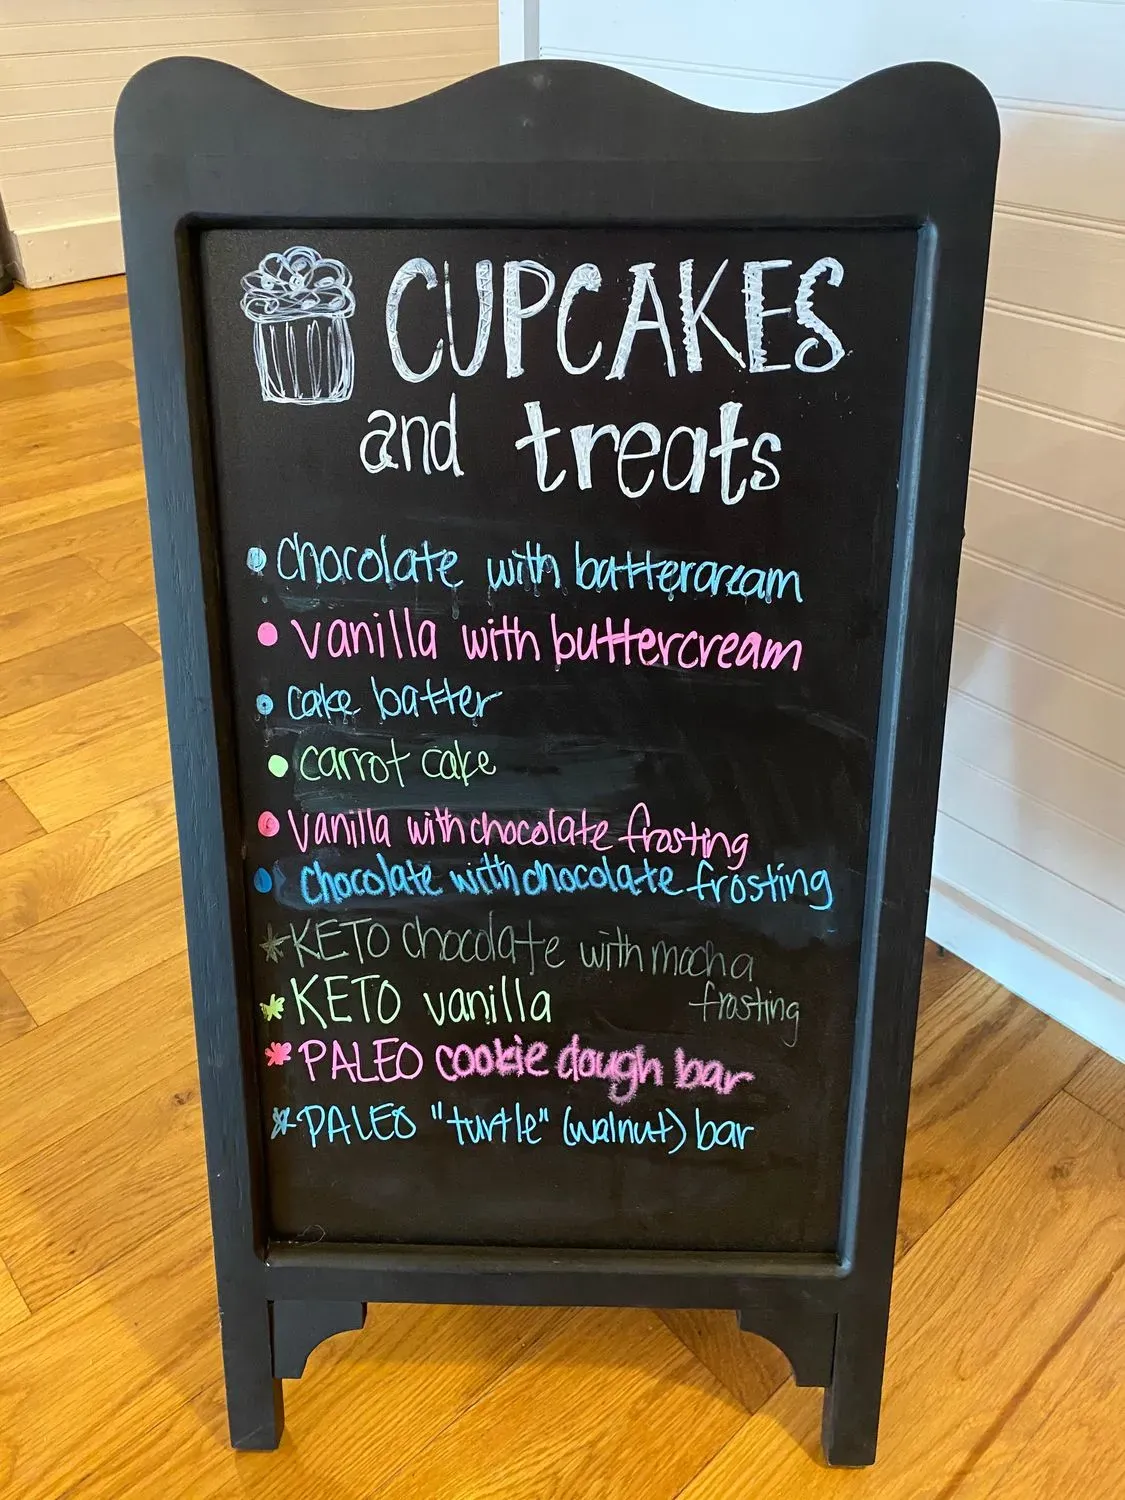 CUPCAKES
and treats
• chocolate with buttercream
• vanilla with buttercream
• cake batter
• carrot cake
• vanilla with chocolate frosting
• chocolate with chocolate frosting
* KETO chocolate with mocha
frosting
* KETO vanilla
* PALEO cookie dough bar
* PALEO "turtle" (walnut) bar